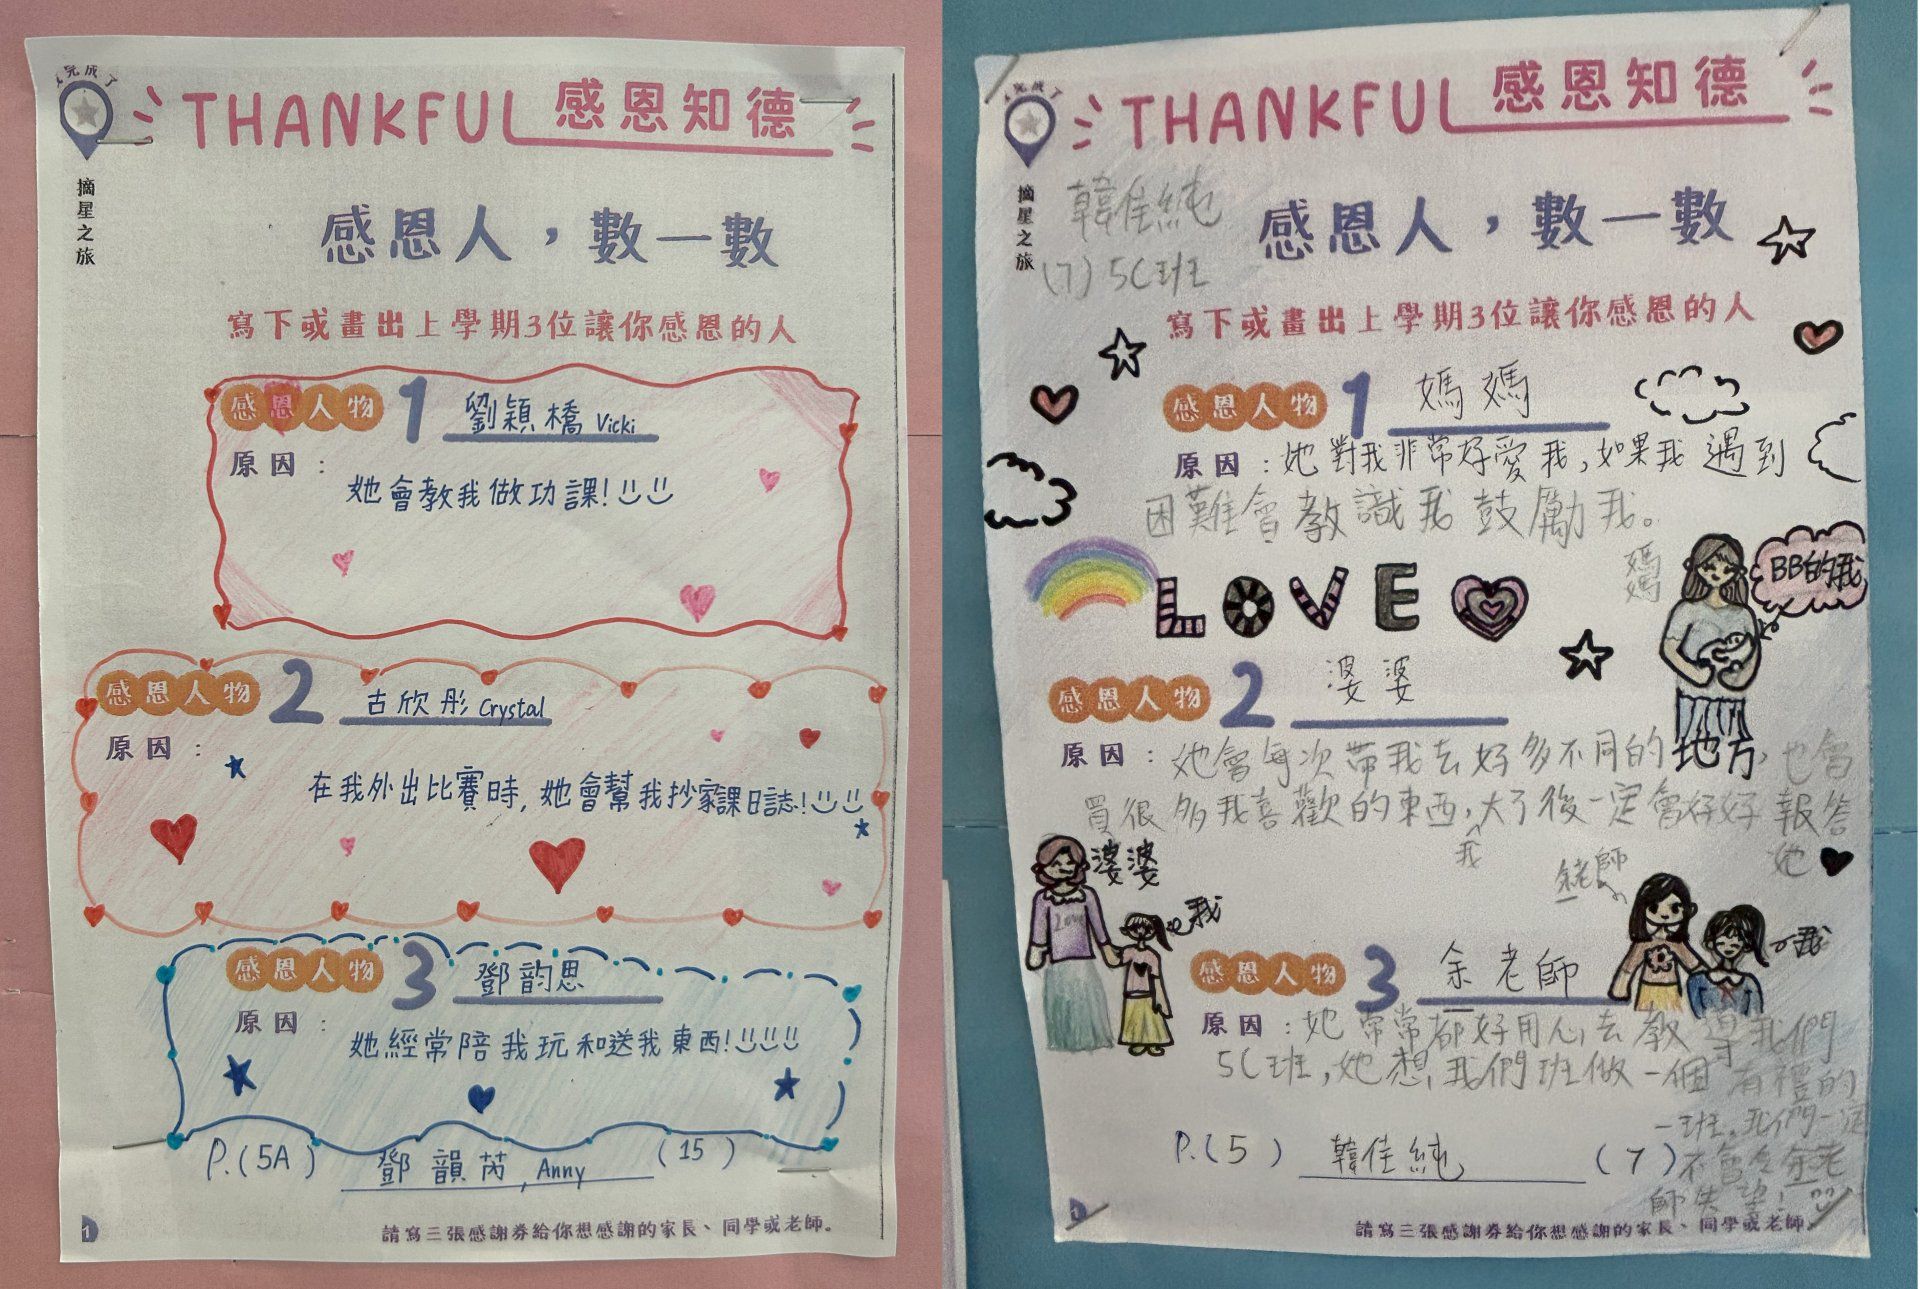 完成了
摘星之旅
THANKFUL 感恩知德
感恩人，數一數
寫下或畫出上學期3位讓你感恩的人
感恩人物 1 劉穎橋 Vicki
原因：
她會教我做功課!
感恩人物 2 古欣彤 Crystal
原因：
在我外出比賽時, 她會幫我抄家課日誌!
感恩人物 3 鄧韵思
原因：
她經常陪我玩和送我東西!
P.(5A) 鄧韻芮, Anny (15)
1
請寫三張感謝券給你想感謝的家長、同學或老師。
完成了
摘星之旅
THANKFUL 感恩知德
韓佳純
(7) 5C班
感恩人，數一數
寫下或畫出上學期3位讓你感恩的人
感恩人物 1 媽媽
原因：她對我非常好愛我, 如果我遇到
困難會教識我鼓勵我。
媽媽
BB的我
LOVE
感恩人物 2 婆婆
原因：她會每次帶我去好多不同的地方, 也會
買很多我喜歡的東西, 我大了後一定會好好報答
她
婆婆
我
余老師
我
感恩人物 3 余老師
原因：她常常都好用心去教導我們
5C班, 她想我們班做一個有禮的
一班, 我們一定
不會令余老
師失望!
P.(5) 韓佳純 (7)
1
請寫三張感謝券給你想感謝的家長、同學或老師